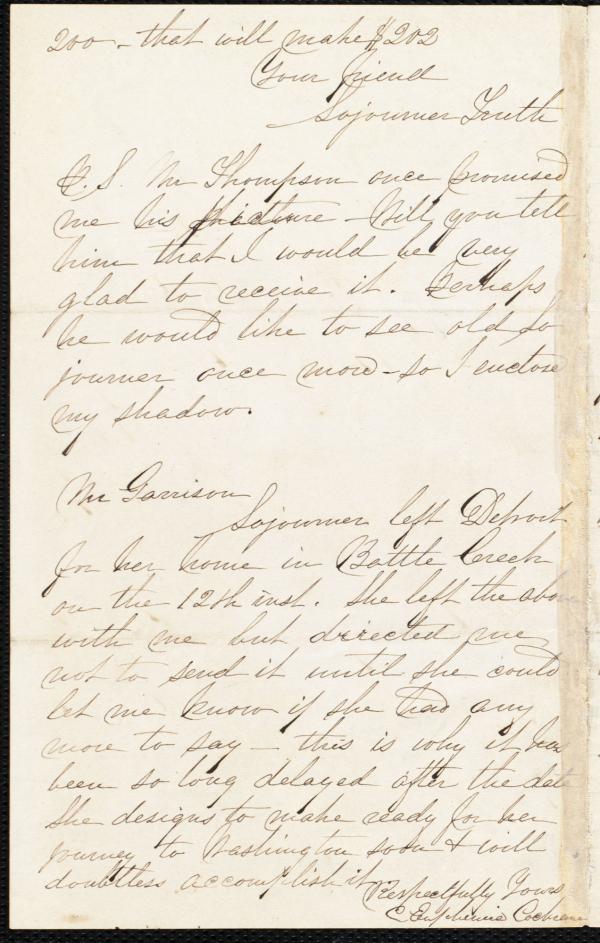 200 - that will make $202
Your friend
Sojourner Truth
P.S. Mr Thompson once promised
me his picture - Will you tell
him that I would be very
glad to receive it. Perhaps
he would like to see old So
journer once more - so I enclose
my shadow.
Mr Garrison
Sojourner left Detroit
for her home in Battle Creek
on the 12th inst. She left the above
with me but directed me
not to send it until she could
let me know if she had any
more to say - this is why it has
been so long delayed after the date
She designs to make ready for her
journey to Washington soon & will
doubtless accomplish it
Respectfully Yours
C. Euphemia Cochrane